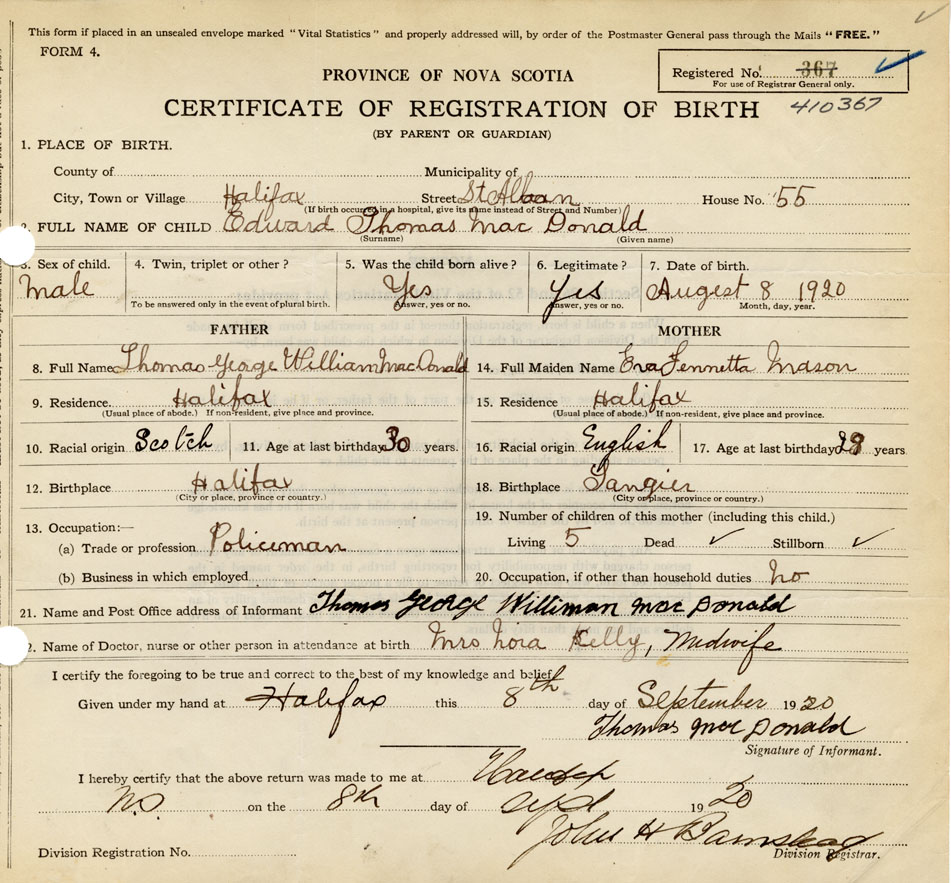 This form if placed in an unsealed envelope marked "Vital Statistics" and properly addressed will, by order of the Postmaster General pass through the Mails "FREE."
FORM 4.
Registered No. 367
For use of Registrar General only.
410367
PROVINCE OF NOVA SCOTIA
CERTIFICATE OF REGISTRATION OF BIRTH
(BY PARENT OR GUARDIAN)
1. PLACE OF BIRTH.
County of Municipality of
City, Town or Village Halifax Street St Alban House No. 55
(If birth occured in a hospital, give its name instead of Street and Number)
2. FULL NAME OF CHILD Edward Thomas Mac Donald
(Surname) (Given name)
3. Sex of child. 4. Twin, triplet or other? 5. Was the child born alive? 6. Legitimate? 7. Date of birth.
Male Yes Yes August 8 1920
To be answered only in the event of plural birth. Answer, yes or no. Answer, yes or no. Month, day, year.
FATHER MOTHER
8. Full Name Thomas George William MacDonald 14. Full Maiden Name Eva Fennetta Mason
9. Residence. Halifax 15. Residence Halifax
(Usual place of abode.) If non-resident, give place and province. (Usual place of abode.) If non-resident, give place and province.
10. Racial origin Scotch 11. Age at last birthday 30 years. 16. Racial origin English 17. Age at last birthday years
12. Birthplace Halifax 18. Birthplace Tangier
(City or place, province or country.) (City or place, province or country.)
13. Occupation:— 19. Number of children of this mother (including this child.)
(a) Trade or profession Policeman Living 5 Dead ✓ Stillborn ✓
(b) Business in which employed 20. Occupation, if other than household duties no
21. Name and Post Office address of Informant Thomas George Williman Mac Donald
2. Name of Doctor, nurse or other person in attendance at birth Mrs Nora Kelly, Midwife
I certify the foregoing to be true and correct to the best of my knowledge and belief.
Given under my hand at Halifax this 8th day of September 1920
Thomas Mac Donald
Signature of Informant.
I hereby certify that the above return was made to me at
N.S. on the 8th day of 1920
John H Barnstead
Division Registration No. Division Registrar.